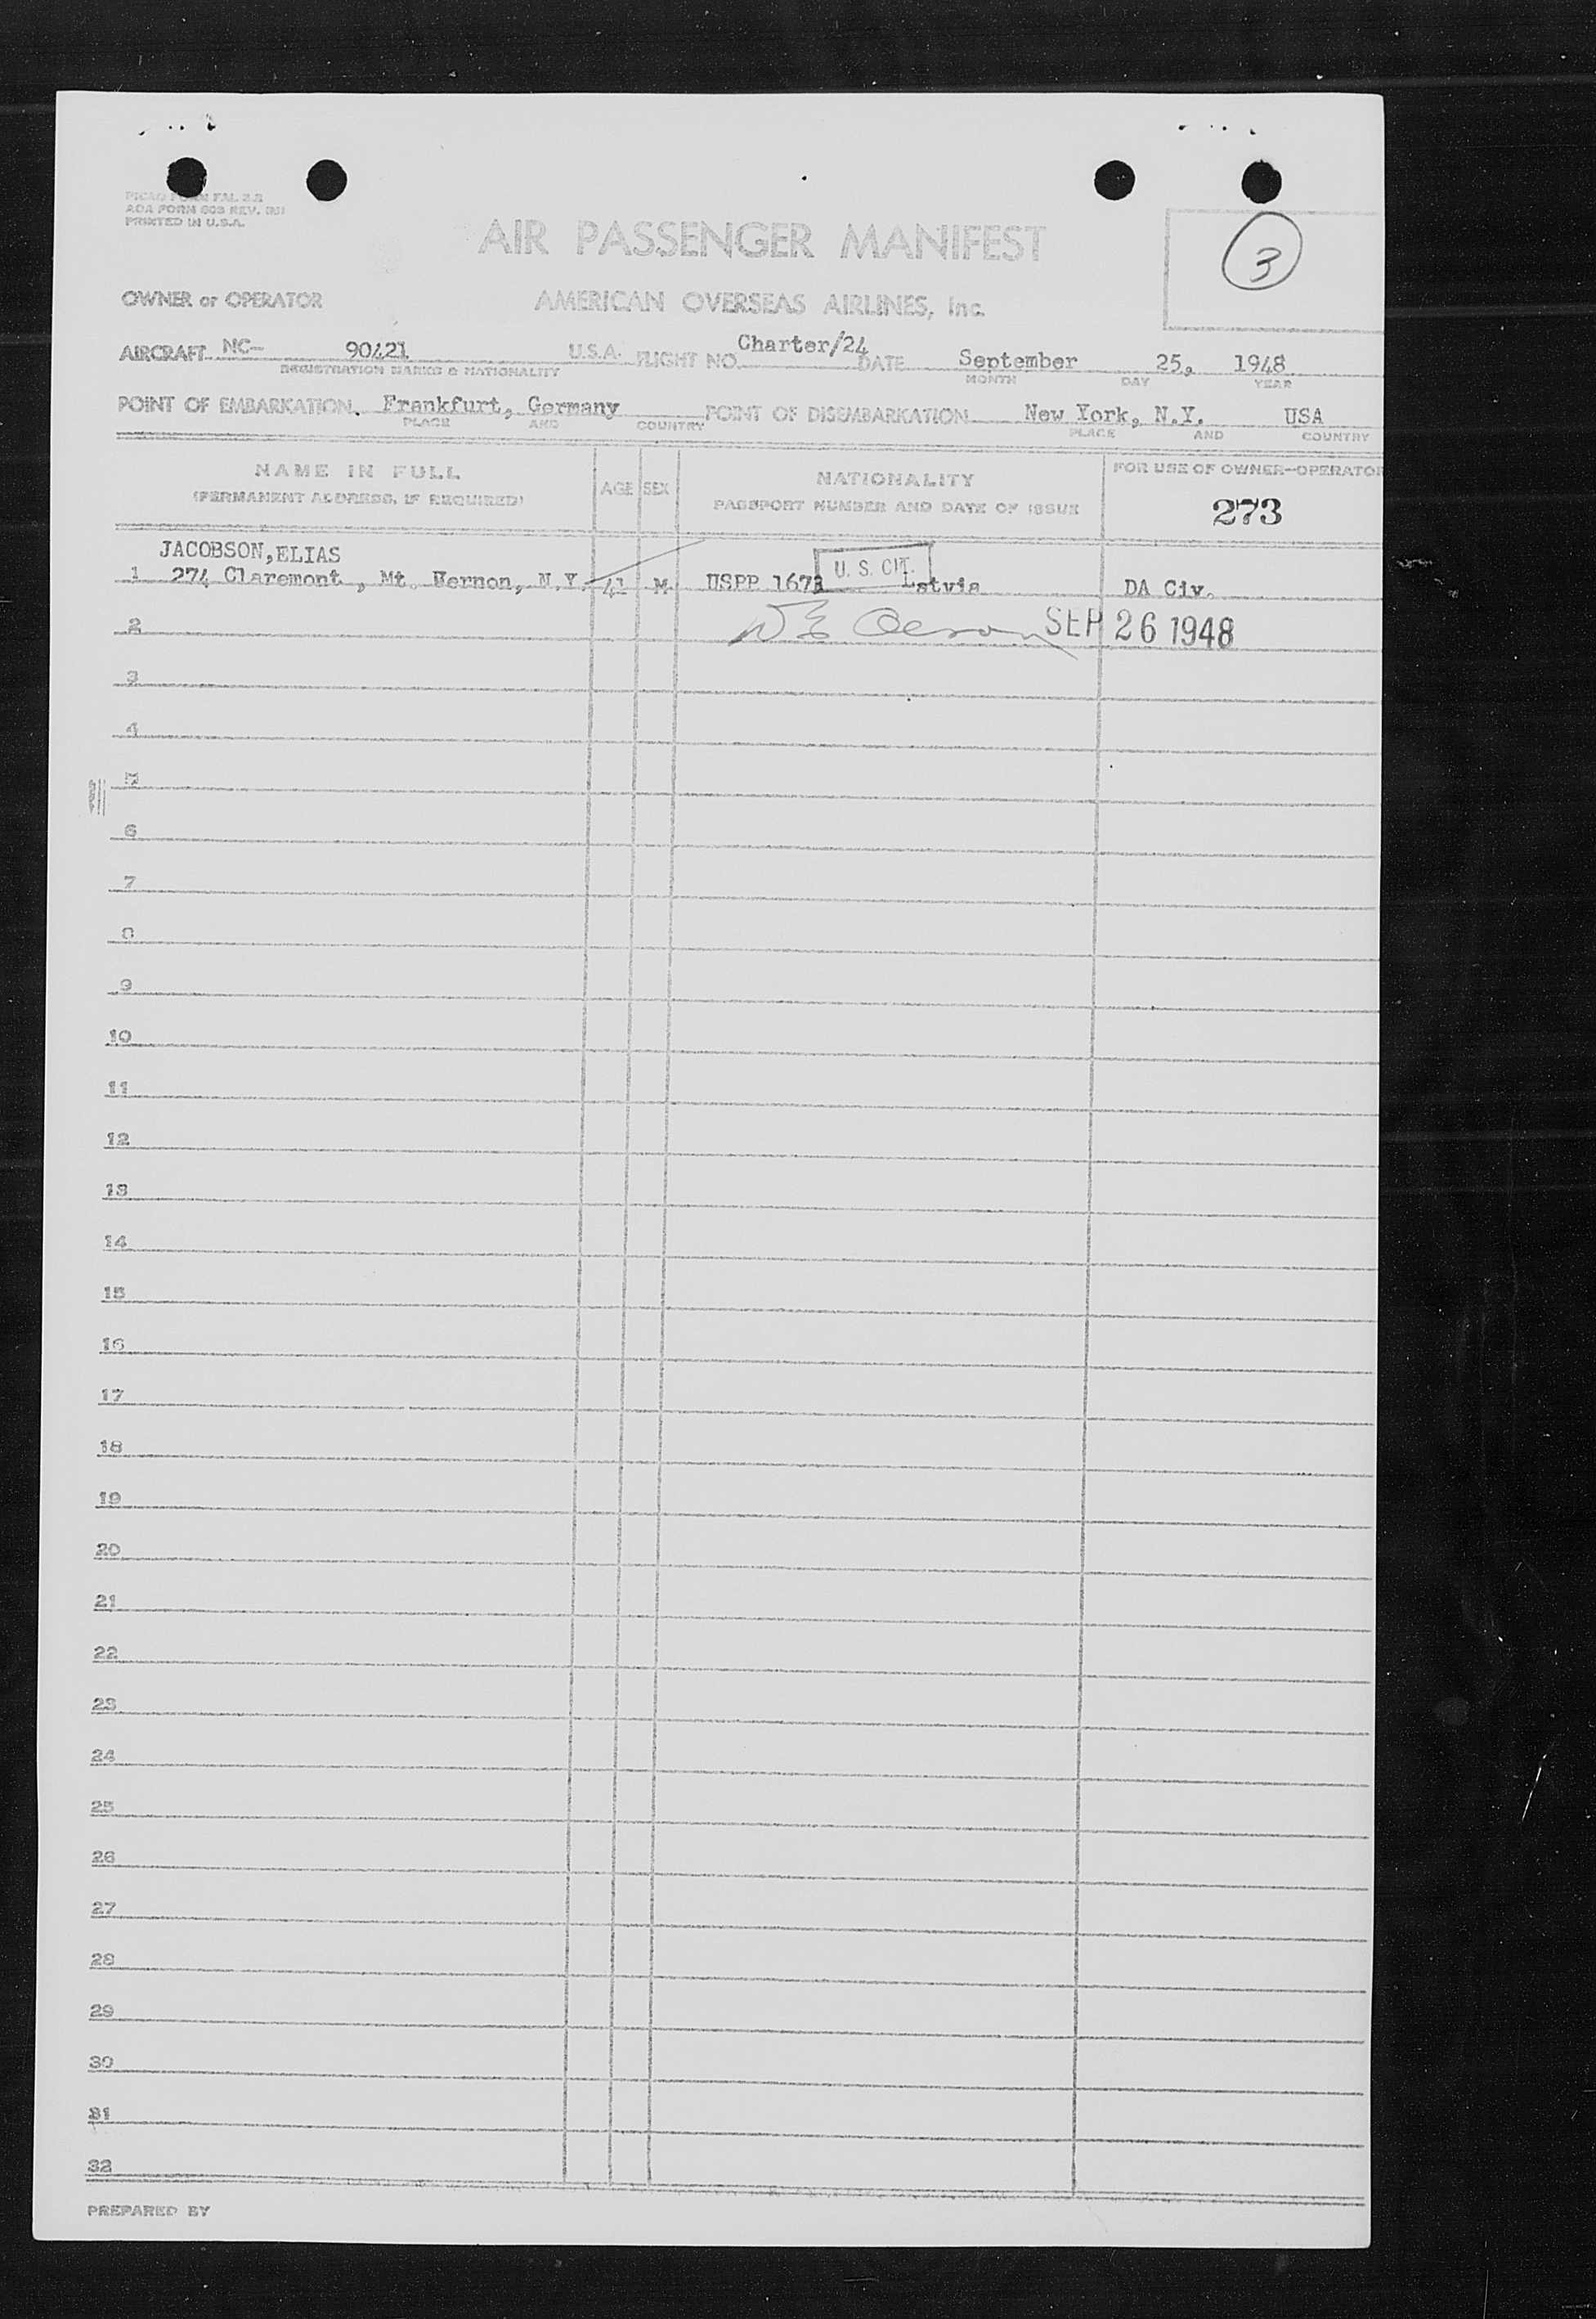 PICAO FORM FAL 2.2
AOA FORM 603 REV.
PRINTED IN U.S.A.
3
AIR PASSENGER MANIFEST
OWNER or OPERATOR AMERICAN OVERSEAS AIRLINES, Inc.
AIRCRAFT NC- 90421 U.S.A. FLIGHT NO. Charter/24 DATE September 25, 1948
REGISTRATION MARKS & NATIONALITY MONTH DAY YEAR
POINT OF EMBARKATION. Frankfurt, Germany POINT OF DISEMBARKATION New York, N.Y. USA
PLACE AND COUNTRY PLACE AND COUNTRY
NAME IN FULL AGE SEX NATIONALITY FOR USE OF OWNER-OPERATOR
(PERMANENT ADDRESS, IF REQUIRED) PASSPORT NUMBER AND DATE OF ISSUE 273
JACOBSON,ELIAS U. S. CIT.
1 274 Claremont , Mt. Vernon, N.Y. 41 M USPP 1673 Latvia DA Civ.
2 SEP 26 1948
3
4
5
6
7
8
9
10
11
12
13
14
15
16
17
18
19
20
21
22
23
24
25
26
27
28
29
30
31
32
PREPARED BY